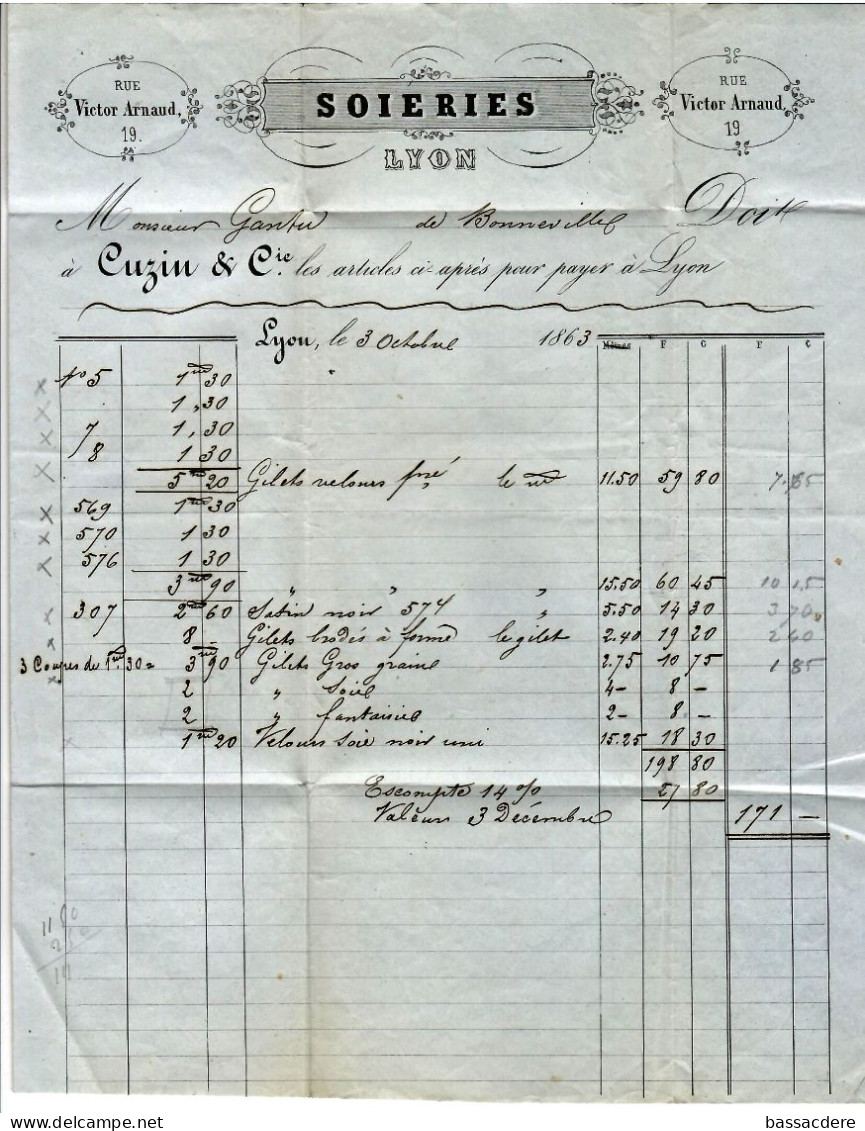 RUE
Victor Arnaud,
19.
SOIERIES
LYON
RUE
Victor Arnaud,
19
Monsieur de Bonneville Doit
à Cuzin & Cie. les articles ci-après pour payer à Lyon
Lyon, le 3 Octobre 1863 Mètres F C F C
No 5 1m 30
1,30
7 1,30
8 1 30
5m 20 Gilets velours le m 11.50 59 80 7.85
569 1m 30
570 1 30
576 1 30
3m 90 " " " 15.50 60 45 10 15
307 2m 60 Satin noir 574 " 5.50 14 30 3 70
8 - Gilets brodés à forme le gilet 2.40 19 20 2 60
3 Coupes de 1m.30 = 3m 90 Gilets Gros graine 2.75 10 75 1 85
2 " soie 4- 8 -
2 " fantaisie 2- 8 -
1m 20 Velours soie noir uni 15.25 18 30
198 80
Escompte 14 % 27 80
Valeur 3 Décembre 171 -
bassacdere